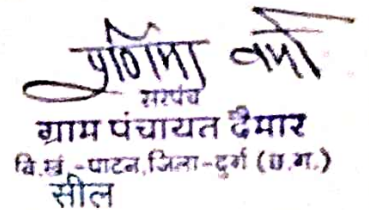 पूर्णिमा वर्मा
सरपंच
ग्राम पंचायत देमार
वि.खं.-पाटन,जिला-दुर्ग (छ.ग.)
सील